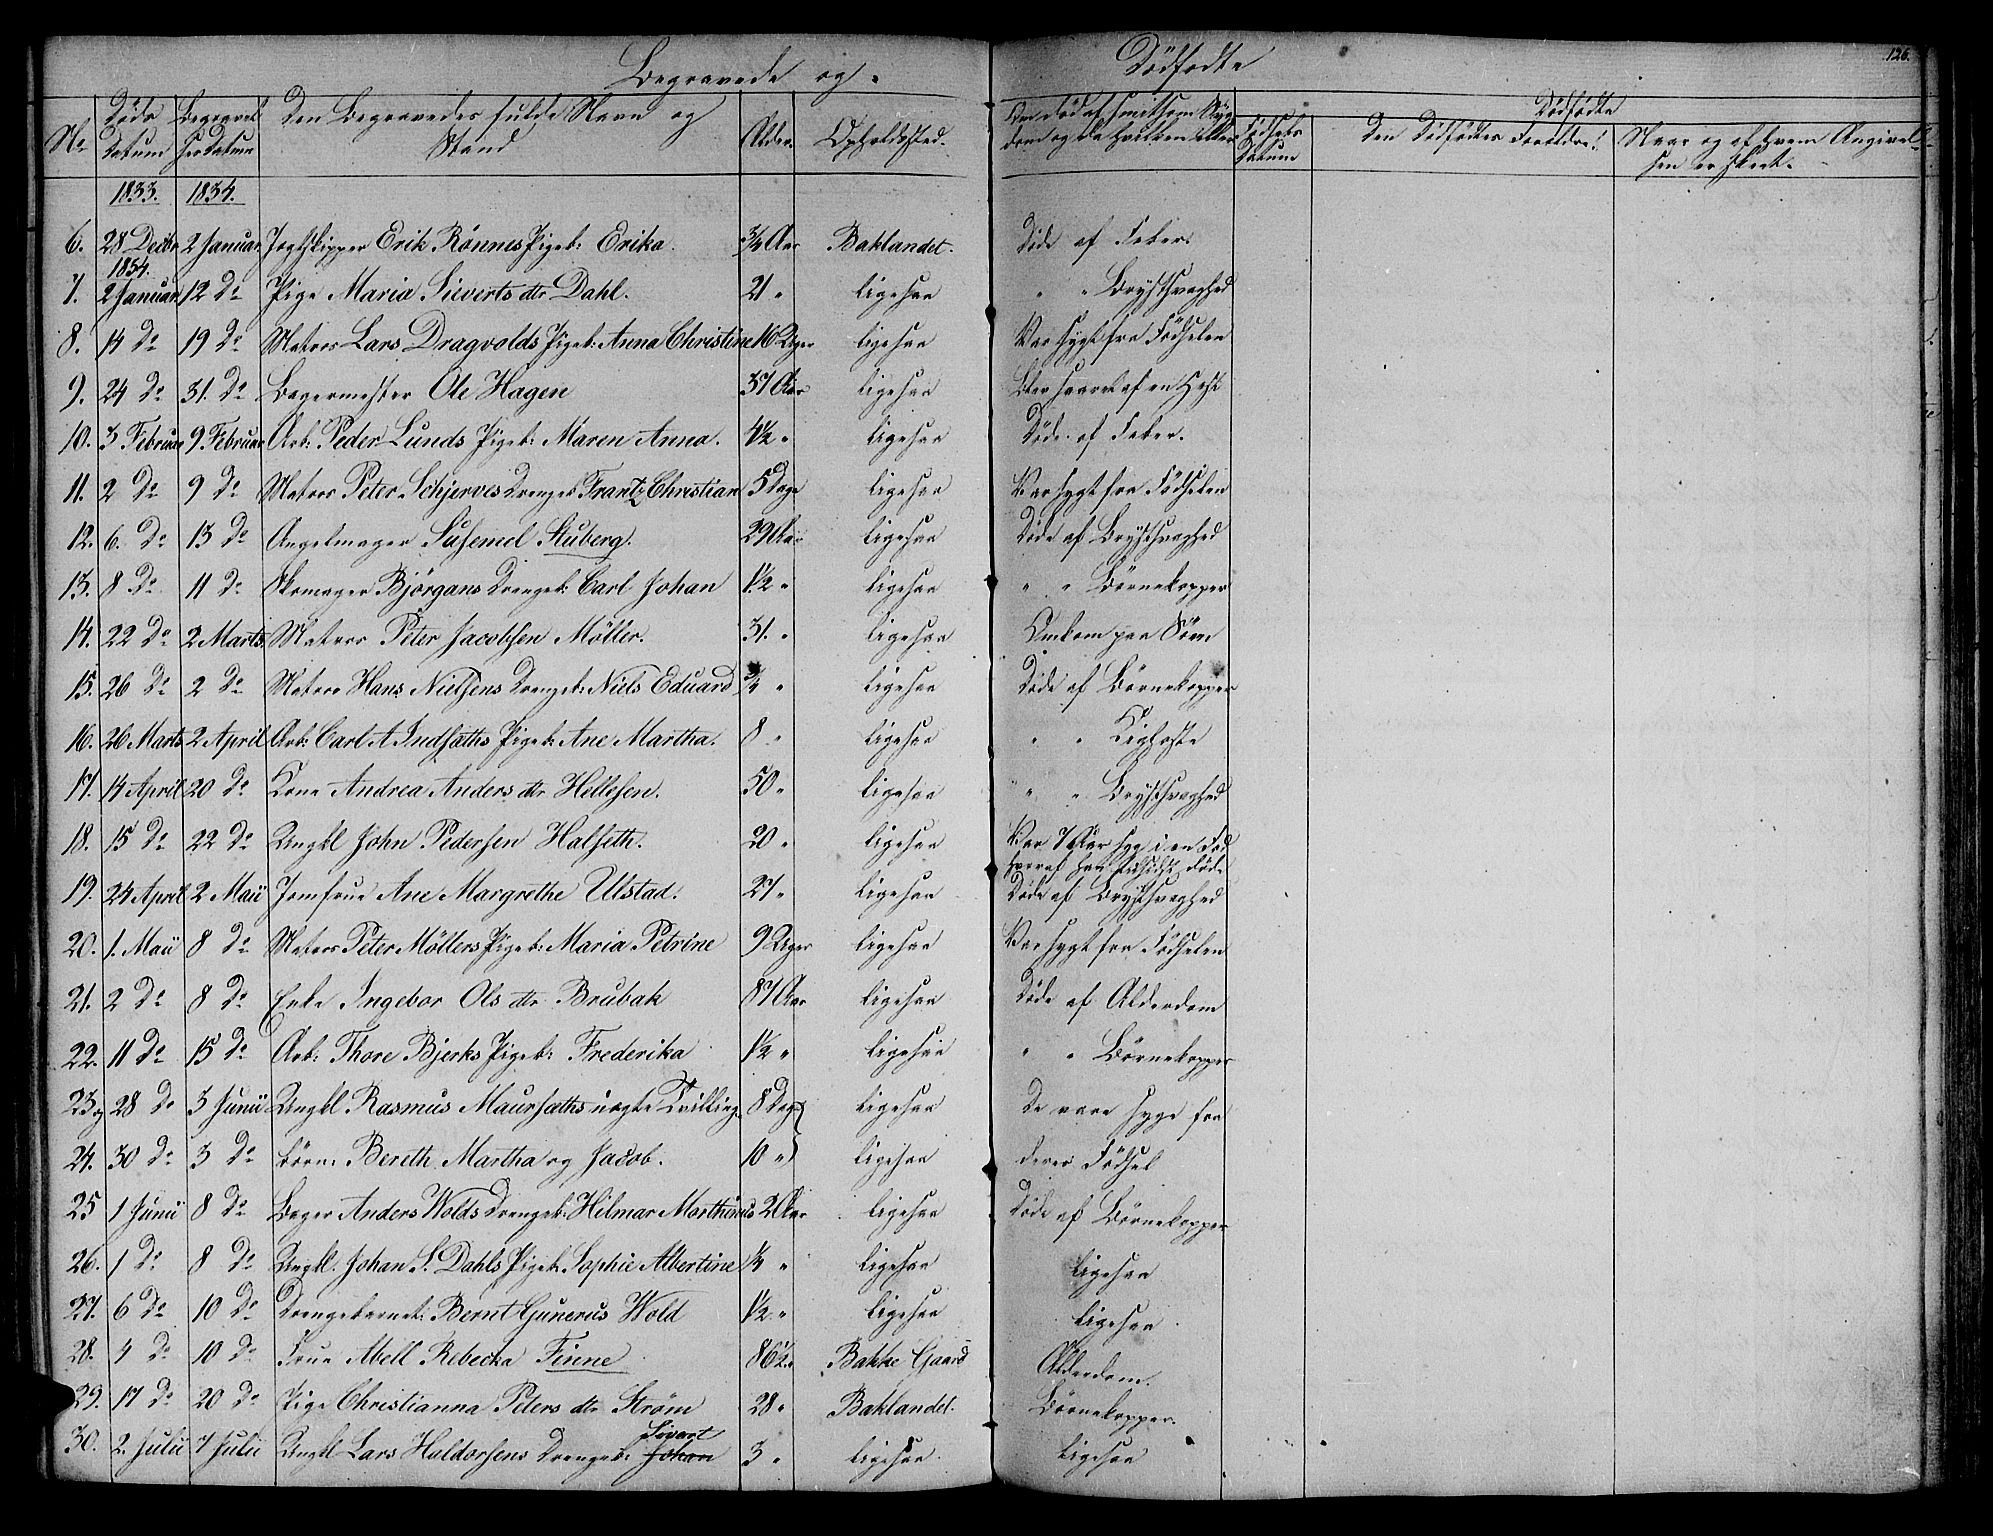 Begravede og
Dödfødte
126.
No
Døds Datum
Begravel ses Datum
Den Begravedes fulde Navn og Stand
Alder.
Opholdssted.
Om död af smitsom Syg dom og da hvilken eller
Födsels Datum
Dödfødte
Den Dödfödtes Forældre.
Naar og af hvem Angivel- sen er skeet.
1833. 1834.
6. 28 Decbr 2 Januar Jagtskipper Erik Rönnes Pigeb: Erika. 3/4 Aar Baklandet. Döde af Feber.
1834.
7. 2 Januar 12 Do Pige Maria Sieverts dtr Dahl. 21 " ligesaa " " Brystsvaghed
8. 14 Do 19 Do Matros Lars Dragvolds Pigeb: Anna Christine 16 Uger ligesaa Var sygt fra Födselen
9. 24 Do 31. Do Bagermester Ole Hagen 37 Aar ligesaa Blev saaret af en Hest
10. 3 Februar 9. Februar Arb: Peder Lunds Pigeb: Maren Anna. 4½ " ligesaa Döde af Feber.
11. 2 Do 9 Do Matros Peter Schjerves Drengeb: Frantz Christian 5 Dage ligesaa Var sygt fra Födselen
12. 6. Do 13 Do Angelmager Susemel Stuberg. 29 Aar ligesaa Döde af Brystsvaghed
13. 8 Do 11 Do Skomager Björgans Drengeb: Carl Johan 1½ " ligesaa " " Börnekopper
14. 22 Do 2 Marts Matros Peter Jacobsen Möller. 31. " ligesaa Omkom paa Söen
15. 26 Do 2 Do Matros Hans Nielsens Drengeb: Niels Eduard 3/4 " ligesaa Döde af Börnekopper
16. 26 Marts 2 April Arb: Carl A Indsæths Pigeb: Ane Martha. 8 " ligesaa " " Kighoste
17. 14 April 20 Do Kone Andrea Anders dtr Hellesen. 50 " ligesaa " " Brystsvaghed
18. 15 Do 22 Do Ungkl John Pedersen Halseth. 20 " ligesaa Var 7 Aar syg i en Fod hvoraf han tilsidst döde
19. 24 April 2 Maii Jomfrue Ane Margrethe Ulstad. 27 " ligesaa Döde af Brystsvaghed
20. 1. Maii 8 Do Matros Peter Möllers Pigeb: Maria Petrine 9 Uger ligesaa Var sygt fra Födselen
21. 2 Do 8 Do Enke Ingebor Ols dtr Brubak 87 Aar ligesaa Döde af Alderdom
22. 11 Do 15 Do Arb: Thore Bjerks Pigeb: Frederika 1½ " ligesaa " " Börnekopper
23. og 28 Do 3 Junii Ungkl Rasmus Maursæths uægte Tvilling 8 Dage ligesaa De vare syge fra
24. 30 Do 3 Do börn: Bereth Martha og Jacob. 10 " ligesaa deres Födsel
25 1 Junii 8 Do Bager Anders Wolds Drengeb: Hilmar Marthinus 2 Aar ligesaa Döde af Börnekopper
26. 1 Do 8 Do Ungkl. Johan S. Dahls Pigeb: Sophie Albertine ¼ " ligesaa ligesaa
27. 6 Do 10 Do Drengebarnet: Bernt Gunerus Wold 1½ " ligesaa ligesaa
28. 4 Do 10 Do Frue Abell Rebecka Finne 86½ " Bakke Gaard Alderdom.
29. 17 Do 20 Do Pige Christianna Peters dtr Ström 28 " Baklandet. Börnekopper.
30. 2. Julii 7 Julii Ungkl Lars Haldorsens Drengeb: Johan Sivert 3 " ligesaa ligesaa